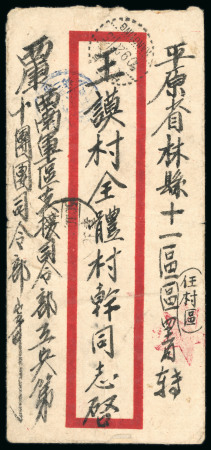 平原省林縣十一區區
轉
任村區
王謨村全體村幹同志啓
西康西南軍區支援司令部工兵第
十團團司令部